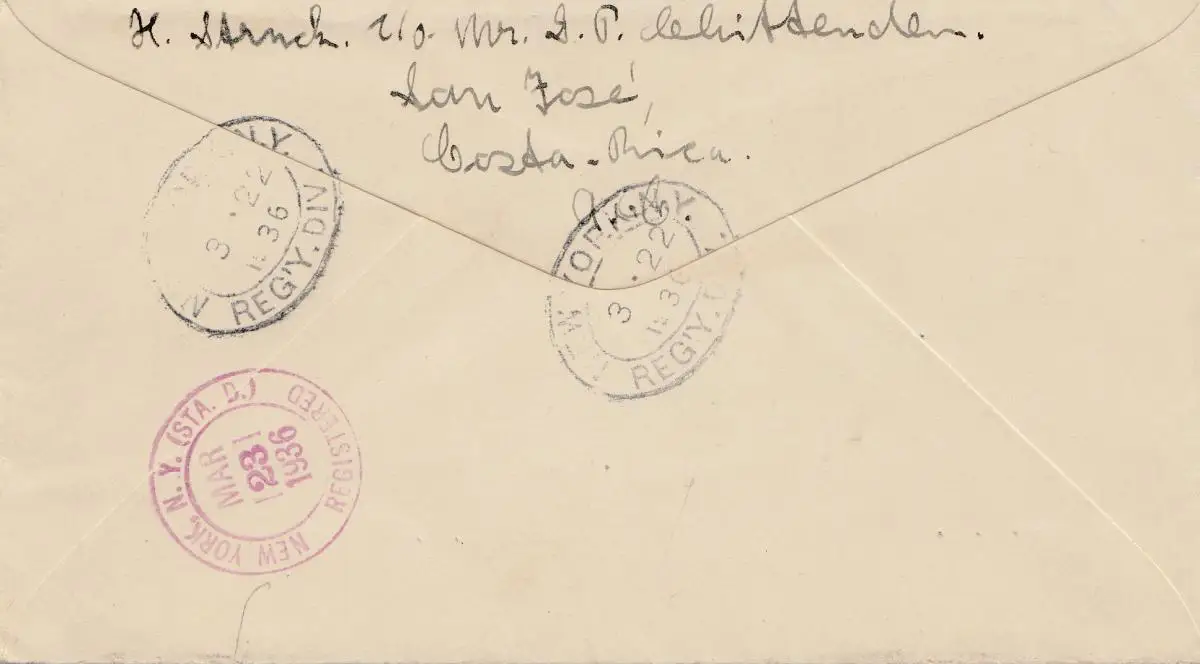 H. Struck. c/o. Mr. D. P. Chittenden.
San José,
Costa-Rica.
N.Y.
3 . 22
1936
REG'Y. DIV.
YORK, N.Y.
3 . 22
REG'Y.
NEW YORK, N. Y. (STA. D.)
REGISTERED
MAR
23
1936